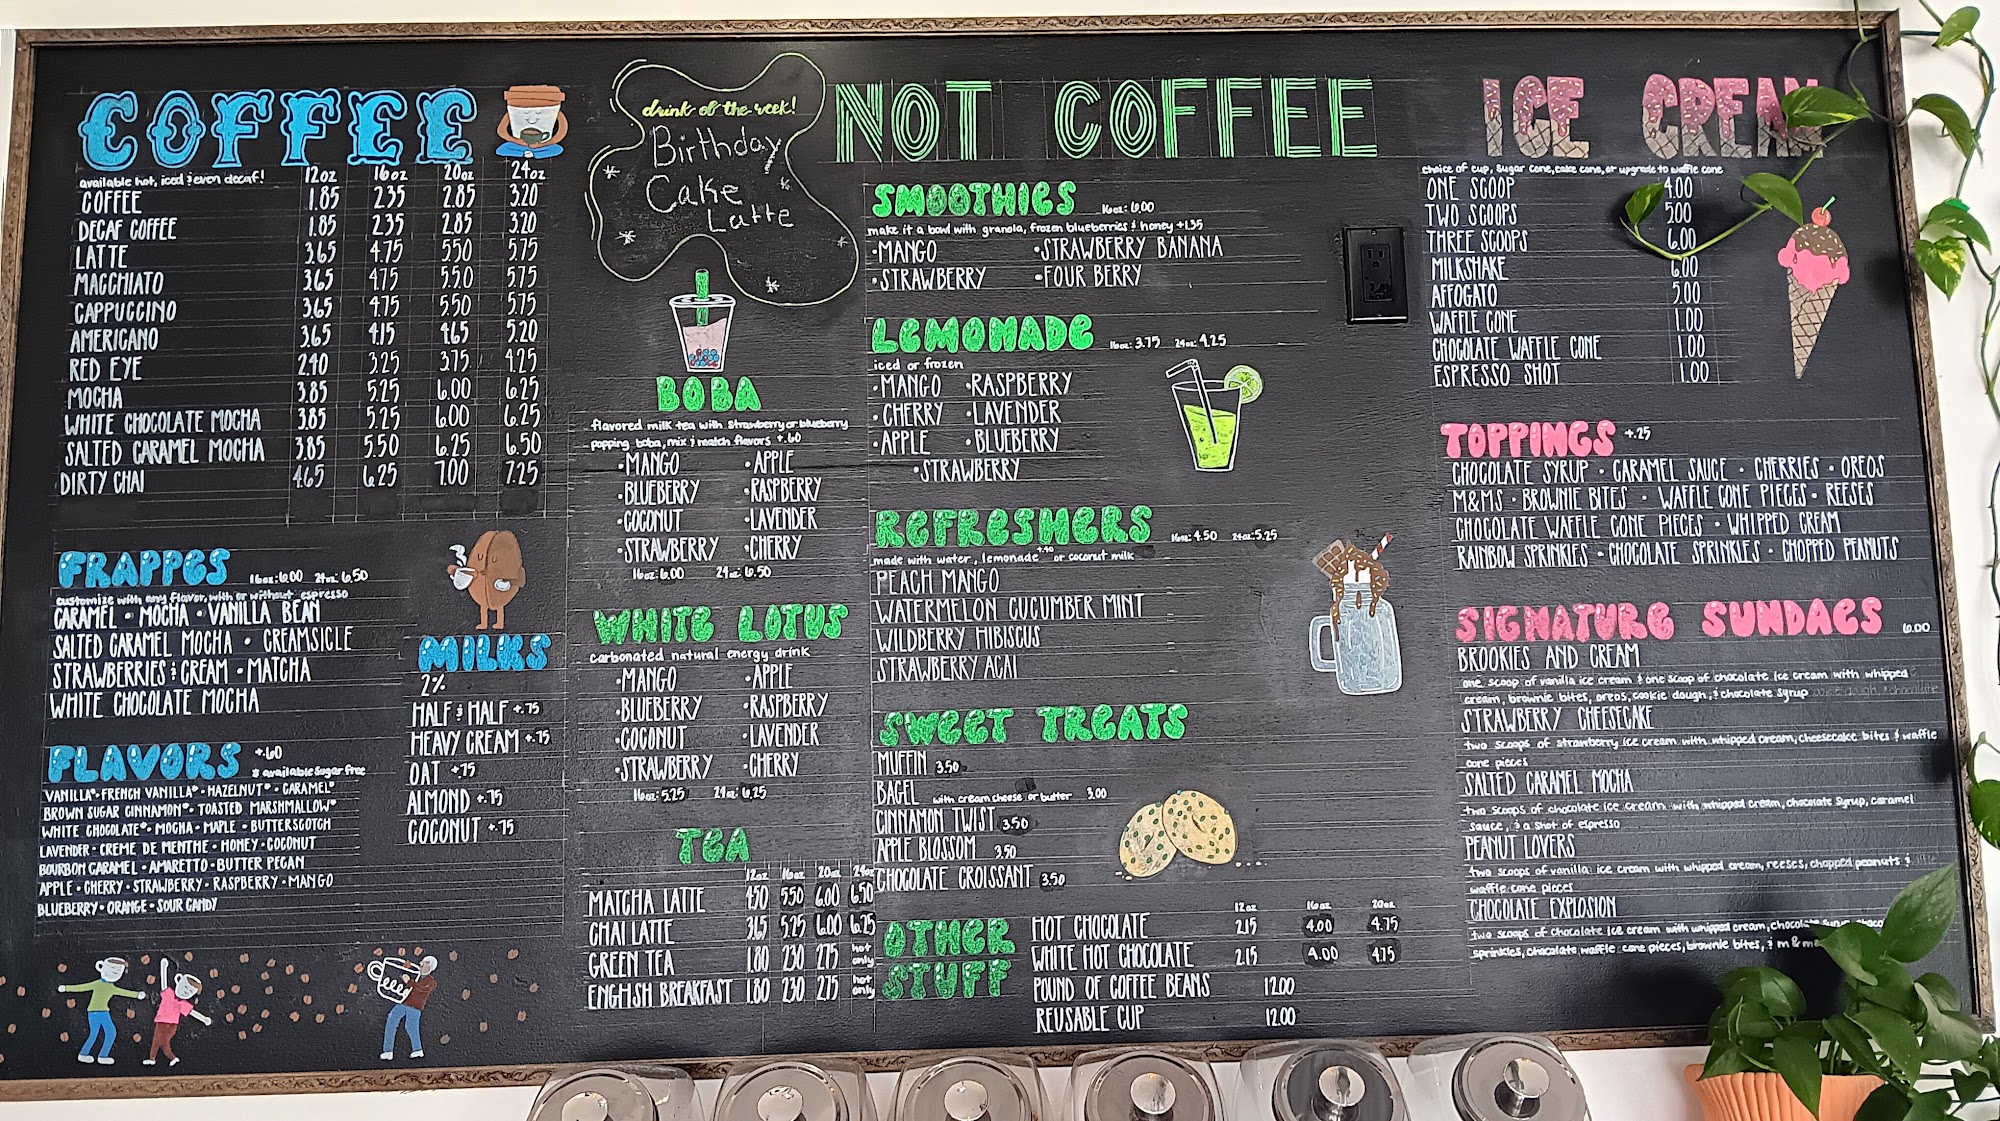 COFFEE
available hot, iced & even decaf! 12oz 16oz 20oz 24oz
COFFEE 1.85 2.35 2.85 3.20
DECAF COFFEE 1.85 2.35 2.85 3.20
LATTE 3.65 4.75 5.50 5.75
MACCHIATO 3.65 4.75 5.50 5.75
CAPPUCCINO 3.65 4.75 5.50 5.75
AMERICANO 3.65 4.15 4.65 5.20
RED EYE 2.40 3.25 3.75 4.25
MOCHA 3.85 5.25 6.00 6.25
WHITE CHOCOLATE MOCHA 3.85 5.25 6.00 6.25
SALTED CARAMEL MOCHA 3.85 5.50 6.25 6.50
DIRTY CHAI 4.65 6.25 7.00 7.25
FRAPPES 16oz: 6.00 24oz: 6.50
customize with any flavor, with or without espresso
CARAMEL • MOCHA • VANILLA BEAN
SALTED CARAMEL MOCHA • CREAMSICLE
STRAWBERRIES & CREAM • MATCHA
WHITE CHOCOLATE MOCHA
FLAVORS +.60
* available sugar free
VANILLA* • FRENCH VANILLA* • HAZELNUT* • CARAMEL*
BROWN SUGAR CINNAMON* • TOASTED MARSHMALLOW*
WHITE CHOCOLATE* • MOCHA • MAPLE • BUTTERSCOTCH
LAVENDER • CREME DE MENTHE • HONEY • COCONUT
BOURBON CARAMEL • AMARETTO • BUTTER PECAN
APPLE • CHERRY • STRAWBERRY • RASPBERRY • MANGO
BLUEBERRY • ORANGE • SOUR CANDY
MILKS
2%
HALF & HALF +.75
HEAVY CREAM +.75
OAT +.75
ALMOND +.75
COCONUT +.75
drink of the week!
Birthday
Cake
Latte
BOBA
flavored milk tea with strawberry or blueberry
popping boba, mix & match flavors +.60
• MANGO • APPLE
• BLUEBERRY • RASPBERRY
• COCONUT • LAVENDER
• STRAWBERRY • CHERRY
16oz: 6.00 24oz: 6.50
WHITE LOTUS
carbonated natural energy drink
• MANGO • APPLE
• BLUEBERRY • RASPBERRY
• COCONUT • LAVENDER
• STRAWBERRY • CHERRY
16oz: 5.25 24oz: 6.25
TEA
12oz 16oz 20oz 24oz
MATCHA LATTE 4.50 5.50 6.00 6.50
CHAI LATTE 3.65 5.25 6.00 6.25
GREEN TEA 1.80 2.30 2.75 hot only
ENGLISH BREAKFAST 1.80 2.30 2.75 hot only
NOT COFFEE
SMOOTHIES 16oz: 6.00
make it a bowl with granola, frozen blueberries & honey +1.35
• MANGO • STRAWBERRY BANANA
• STRAWBERRY • FOUR BERRY
LEMONADE 16oz: 3.75 24oz: 4.25
iced or frozen
• MANGO • RASPBERRY
• CHERRY • LAVENDER
• APPLE • BLUEBERRY
• STRAWBERRY
REFRESHERS 16oz: 4.50 24oz: 5.25
made with water, lemonade +.40 or coconut milk
PEACH MANGO
WATERMELON CUCUMBER MINT
WILDBERRY HIBISCUS
STRAWBERRY ACAI
SWEET TREATS
MUFFIN 3.50
BAGEL with cream cheese or butter 3.00
CINNAMON TWIST 3.50
APPLE BLOSSOM 3.50
CHOCOLATE CROISSANT 3.50
OTHER STUFF
12oz 16oz 20oz
HOT CHOCOLATE 2.15 4.00 4.75
WHITE HOT CHOCOLATE 2.15 4.00 4.75
POUND OF COFFEE BEANS 12.00
REUSABLE CUP 12.00
ICE CREAM
choice of cup, sugar cone, cake cone, or upgrade to waffle cone
ONE SCOOP 4.00
TWO SCOOPS 5.00
THREE SCOOPS 6.00
MILKSHAKE 6.00
AFFOGATO 5.00
WAFFLE CONE 1.00
CHOCOLATE WAFFLE CONE 1.00
ESPRESSO SHOT 1.00
TOPPINGS +.25
CHOCOLATE SYRUP • CARAMEL SAUCE • CHERRIES • OREOS
M&MS • BROWNIE BITES • WAFFLE CONE PIECES • REESES
CHOCOLATE WAFFLE CONE PIECES • WHIPPED CREAM
RAINBOW SPRINKLES • CHOCOLATE SPRINKLES • CHOPPED PEANUTS
SIGNATURE SUNDAES 6.00
BROOKIES AND CREAM
one scoop of vanilla ice cream & one scoop of chocolate ice cream with whipped
cream, brownie bites, oreos, cookie dough, & chocolate syrup
STRAWBERRY CHEESECAKE
two scoops of strawberry ice cream with whipped cream, cheesecake bites & waffle
cone pieces
SALTED CARAMEL MOCHA
two scoops of chocolate ice cream with whipped cream, chocolate syrup, caramel
sauce, & a shot of espresso
PEANUT LOVERS
two scoops of vanilla ice cream with whipped cream, reeses, chopped peanuts &
waffle cone pieces
CHOCOLATE EXPLOSION
two scoops of chocolate ice cream with whipped cream, chocolate syrup, choco
sprinkles, chocolate waffle cone pieces, brownie bites, & m & m